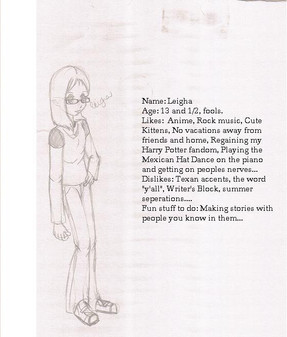 Leigha
Name: Leigha
Age: 13 and 1/2, fools.
Likes:  Anime, Rock music, Cute
Kittens, No vacations away from
friends and home, Regaining my
Harry Potter fandom, Playing the
Mexican Hat Dance on the piano
and getting on peoples nerves...
Dislikes: Texan accents, the word
"y'all", Writer's Block, summer
seperations....
Fun stuff to do: Making stories with
people you know in them...